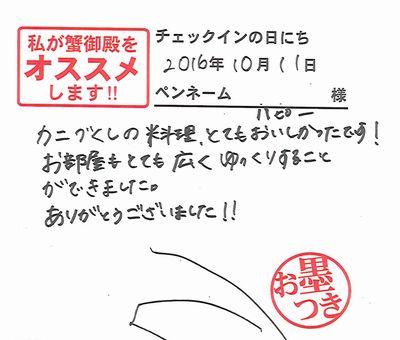 私が蟹御殿を
オススメ
します!!
チェックインの日にち
2016年10月11日
ペンネーム 様
ハピー
カニづくしの料理、とてもおいしかったです！
お部屋もとても広くゆっくりすること
ができました。
ありがとうございました!!
お墨つき